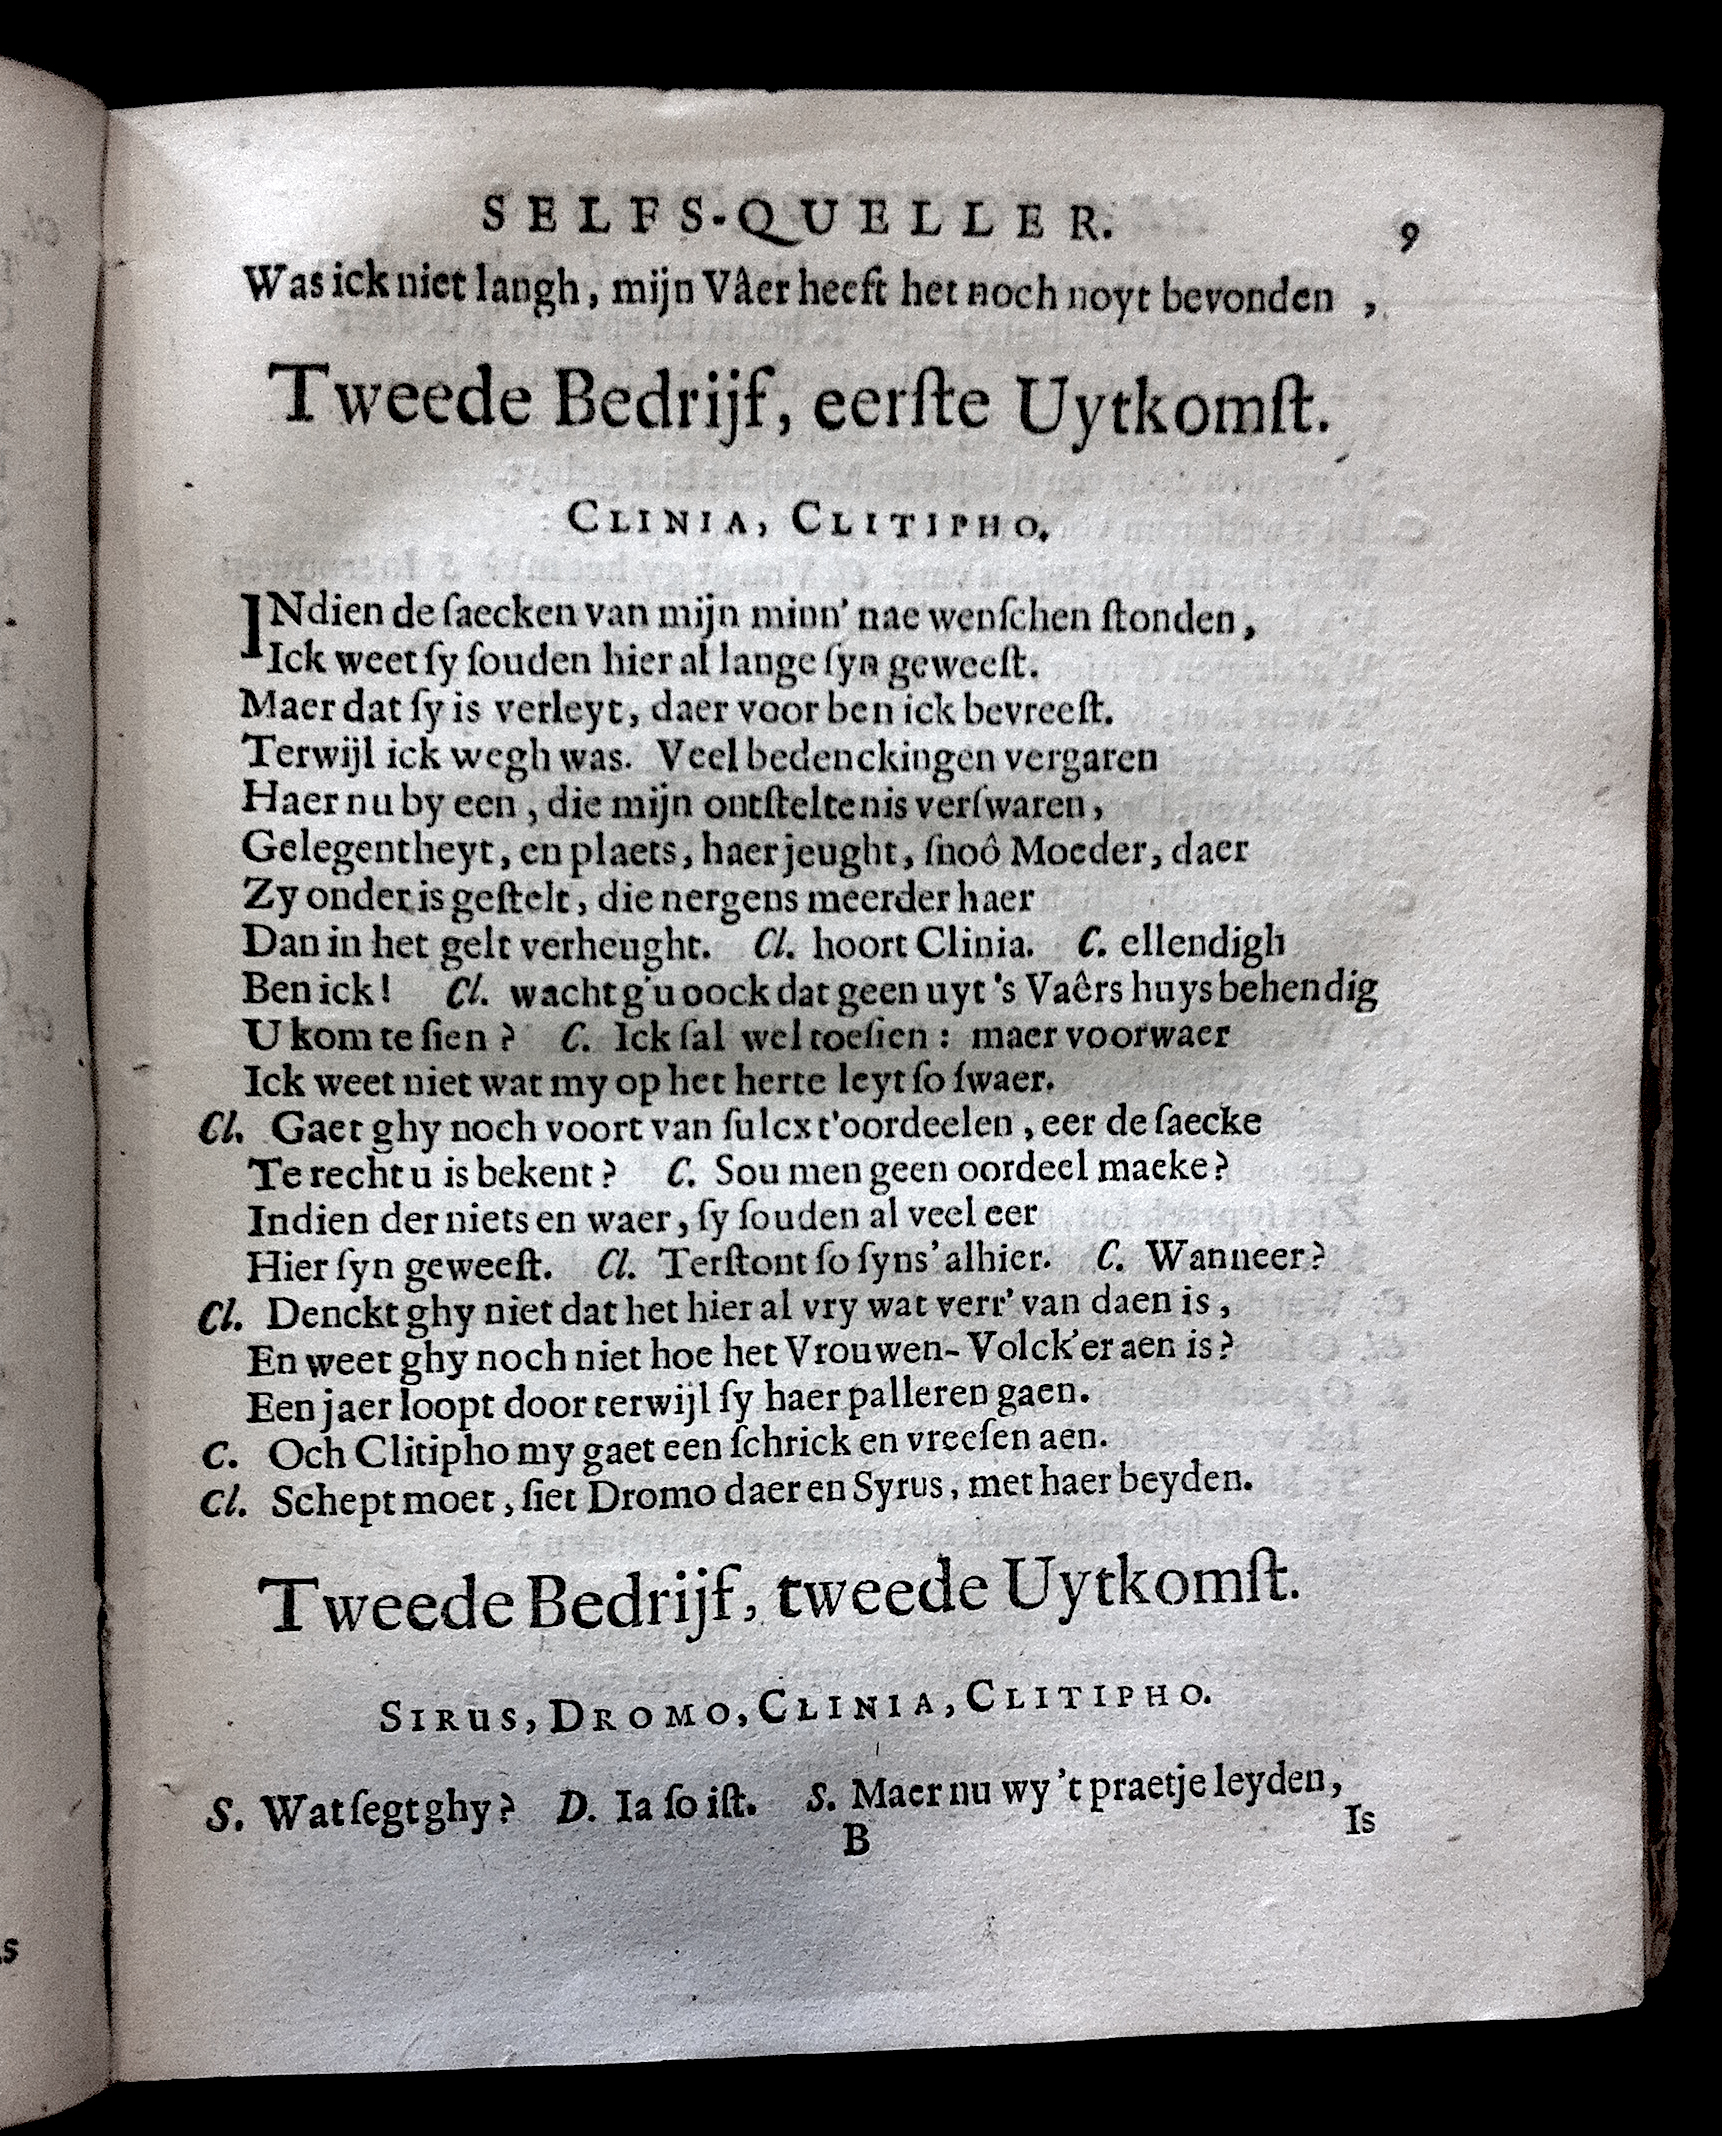 SELFS-QUELLER. 9
Was ick niet langh, mijn Vâer heeft het noch noyt bevonden ,
Tweede Bedrijf, eerſte Uytkomſt.
CLINIA, CLITIPHO.
INdien de ſaecken van mijn minn' nae wenſchen ſtonden,
Ick weet ſy ſouden hier al lange ſyn geweeſt.
Maer dat ſy is verleyt, daer voor ben ick bevreeſt.
Terwijl ick wegh was. Veel bedenckingen vergaren
Haer nu by een, die mijn ontſteltenis verſwaren,
Gelegentheyt, en plaets, haer jeught, ſnoô Moeder, daer
Zy onder is geſtelt, die nergens meerder haer
Dan in het gelt verheught. Cl. hoort Clinia. C. ellendigh
Ben ick! Cl. wacht g'u oock dat geen uyt 's Vaêrs huys behendig
U kom te ſien? C. Ick ſal wel toeſien: maer voorwaer
Ick weet niet wat my op het herte leyt ſo ſwaer.
Cl. Gaet ghy noch voort van ſulcx t'oordeelen, eer de ſaecke
Te recht u is bekent? C. Sou men geen oordeel maeke?
Indien der niets en waer, ſy ſouden al veel eer
Hier ſyn geweeſt. Cl. Terſtont ſo ſyns' alhier. C. Wanneer?
Cl. Denckt ghy niet dat het hier al vry wat verr' van daen is,
En weet ghy noch niet hoe het Vrouwen-Volck'er aen is?
Een jaer loopt door terwijl ſy haer palleren gaen.
C. Och Clitipho my gaet een ſchrick en vreeſen aen.
Cl. Schept moet, ſiet Dromo daer en Syrus, met haer beyden.
Tweede Bedrijf, tweede Uytkomſt.
SIRUS, DROMO, CLINIA, CLITIPHO.
S. Wat ſegt ghy? D. Ia ſo iſt. S. Maer nu wy 't praetje leyden,
B Is